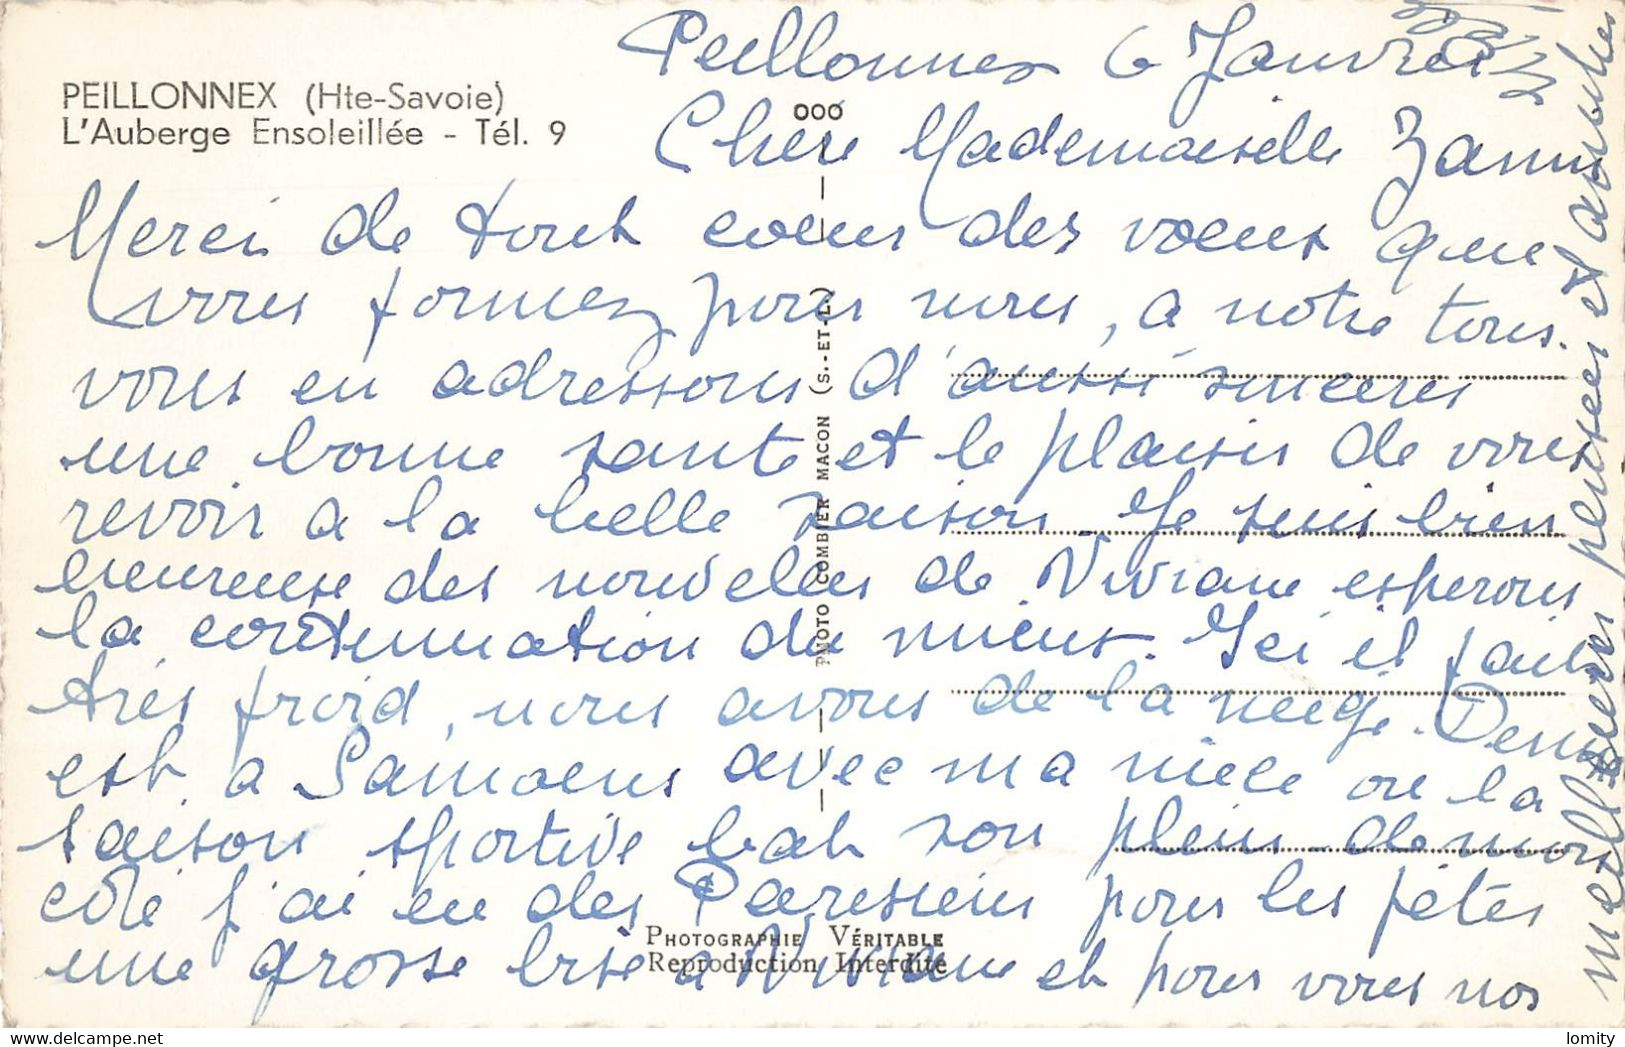 PEILLONNEX (Hte-Savoie)
L'Auberge Ensoleillée - Tél. 9
Peillonnex 6 Janvier
Chère Mademoiselle Zanni
Merci de tout coeur des voeux que
vous formez pour nous, a notre tour
vous en adressons d'aussi sinceres
une bonne santé et le plaisir de vous
revoir a la belle saison. Je suis bien
heureuse des nouvelles de Viviane esperons
la continuation du mieux. Ici il fait
très froid, nous avons de la neige. Denise
est a Samoens avec ma niece ou la
saison sportive bat son plein. de mon
côté j'ai eu des Parisiens pour les fêtes
une grosse bise a Viviane et pour vous nos
meilleures pensées et
000
PHOTO COMBIER MACON (S.-ET-L.)
PHOTOGRAPHIE VÉRITABLE
Reproduction Interdite
lomity